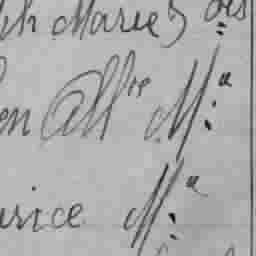 ph Marie des
en Allre M:a
urice M:a